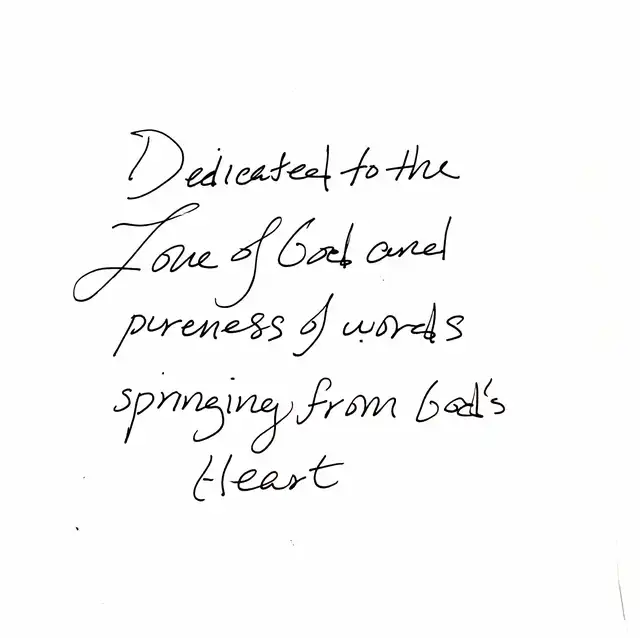 Dedicated to the
Love of God and
pureness of words
springing from God's
Heart